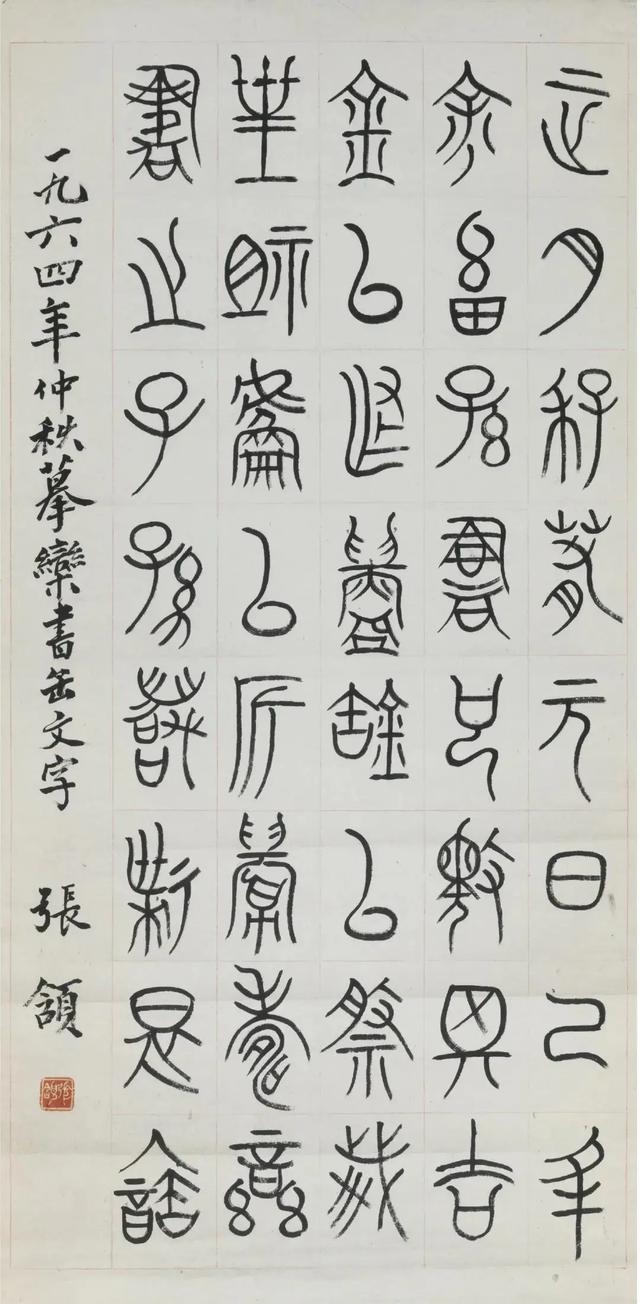 正月季春元日己丑
余畜孫書已擇其吉
金以作鑄缶以祭我
皇祖虘以祈眉壽欒
書之子孫萬世是寶
一九六四年仲秋摹欒書缶文字 張頷